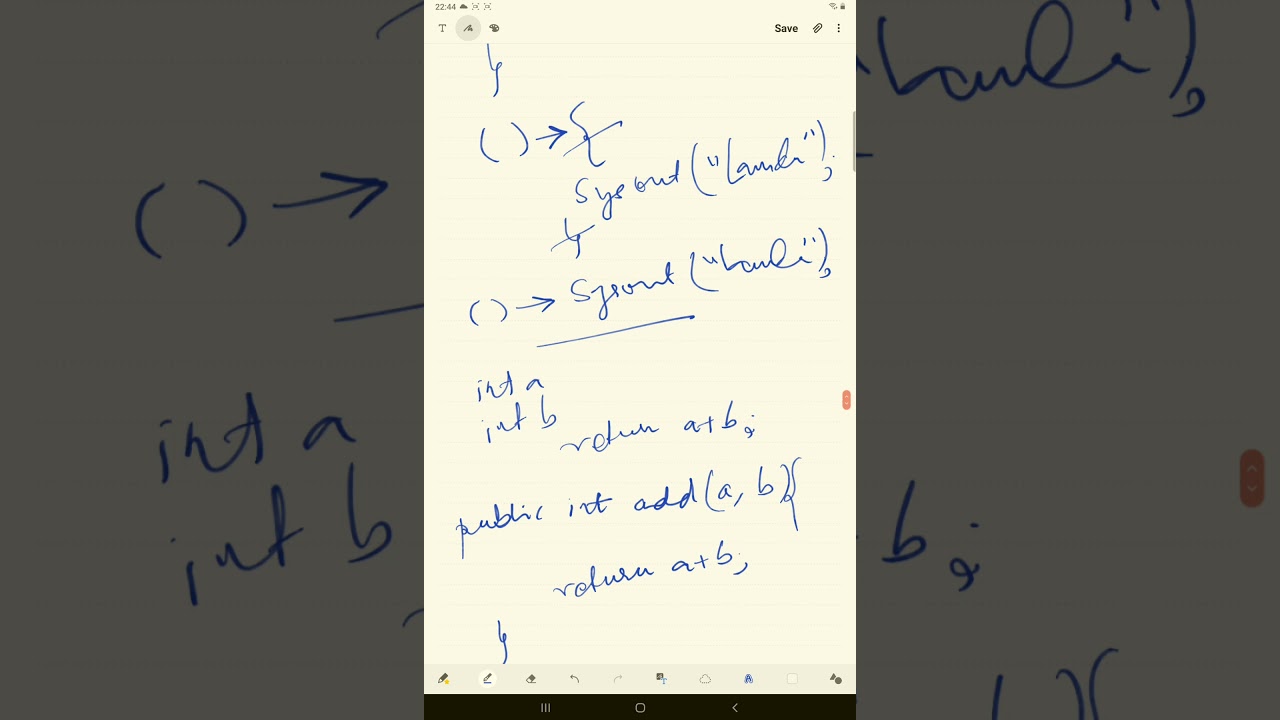 22:44
T Save
}
( ) → {
Sysout ("Lamda");
}
( ) → Sysout ("Lamda");
int a
int b
return a+b;
public int add(a, b){
return a+b;
}